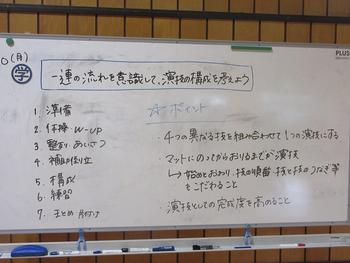 0(月)
PLUS
学
一連の流れを意識して、演技の構成を考えよう
1. 準備
2. 体操 W-UP
3. 整列・あいさつ
4.
5. 構成
6. 練習
7. まとめ 片付け
☆ポイント
・4つの異なる技を組み合わせて1つの演技にする
・マットにのってからおりるまでが演技
↳始めとおわり、技の順番、技と技のつなぎ等をこだわること
・演技としての完成度を高めること